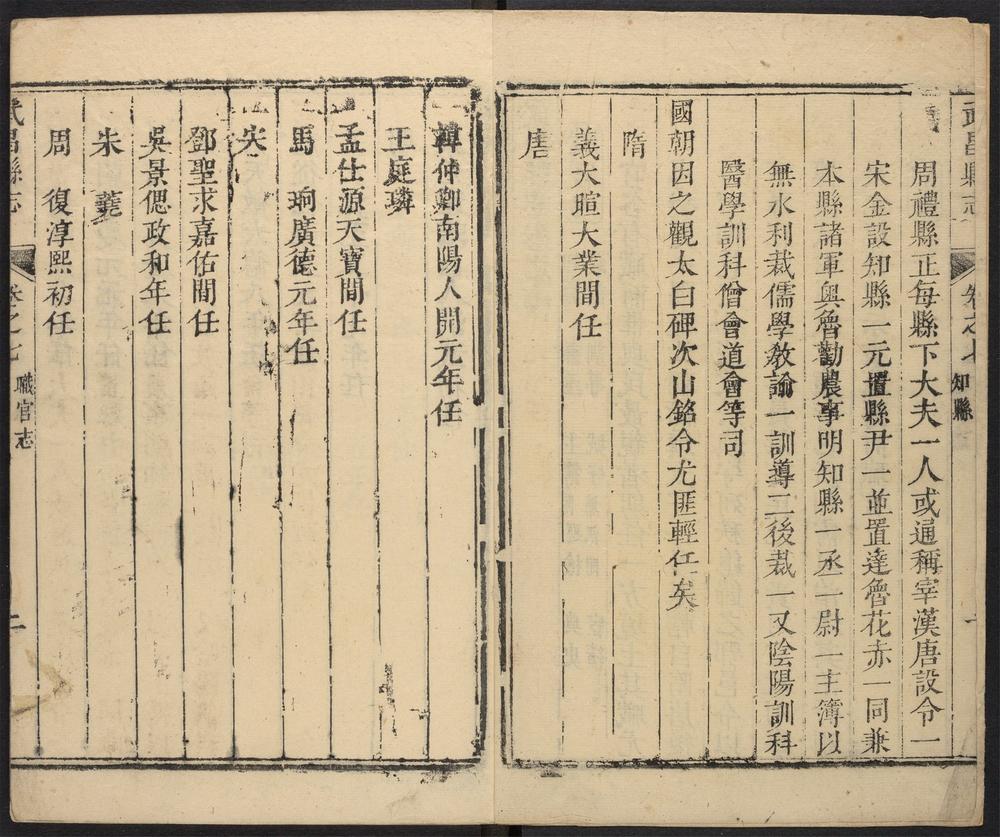 武昌縣志
卷之七
知縣
一
周禮縣正每縣下大夫一人或通稱宰漢唐設令一
宋金設知縣一元置縣尹一並置達魯花赤一同兼
本縣諸軍奧魯勸農事明知縣一丞二尉一主簿以
無水利裁儒學敎諭一訓導二後裁一又陰陽訓科
醫學訓科僧會道會等司
國朝因之觀太白碑次山銘令尤匪輕任矣
隋
義大暄大業間任
唐
韓仲卿南陽人開元年任
王庭璘
孟仕源天寶間任
馬 珦廣德元年任
宋
鄧聖求嘉佑間任
吳景偲政和年任
朱
周 復淳熙初任
武昌縣志
卷之七
職官志
二